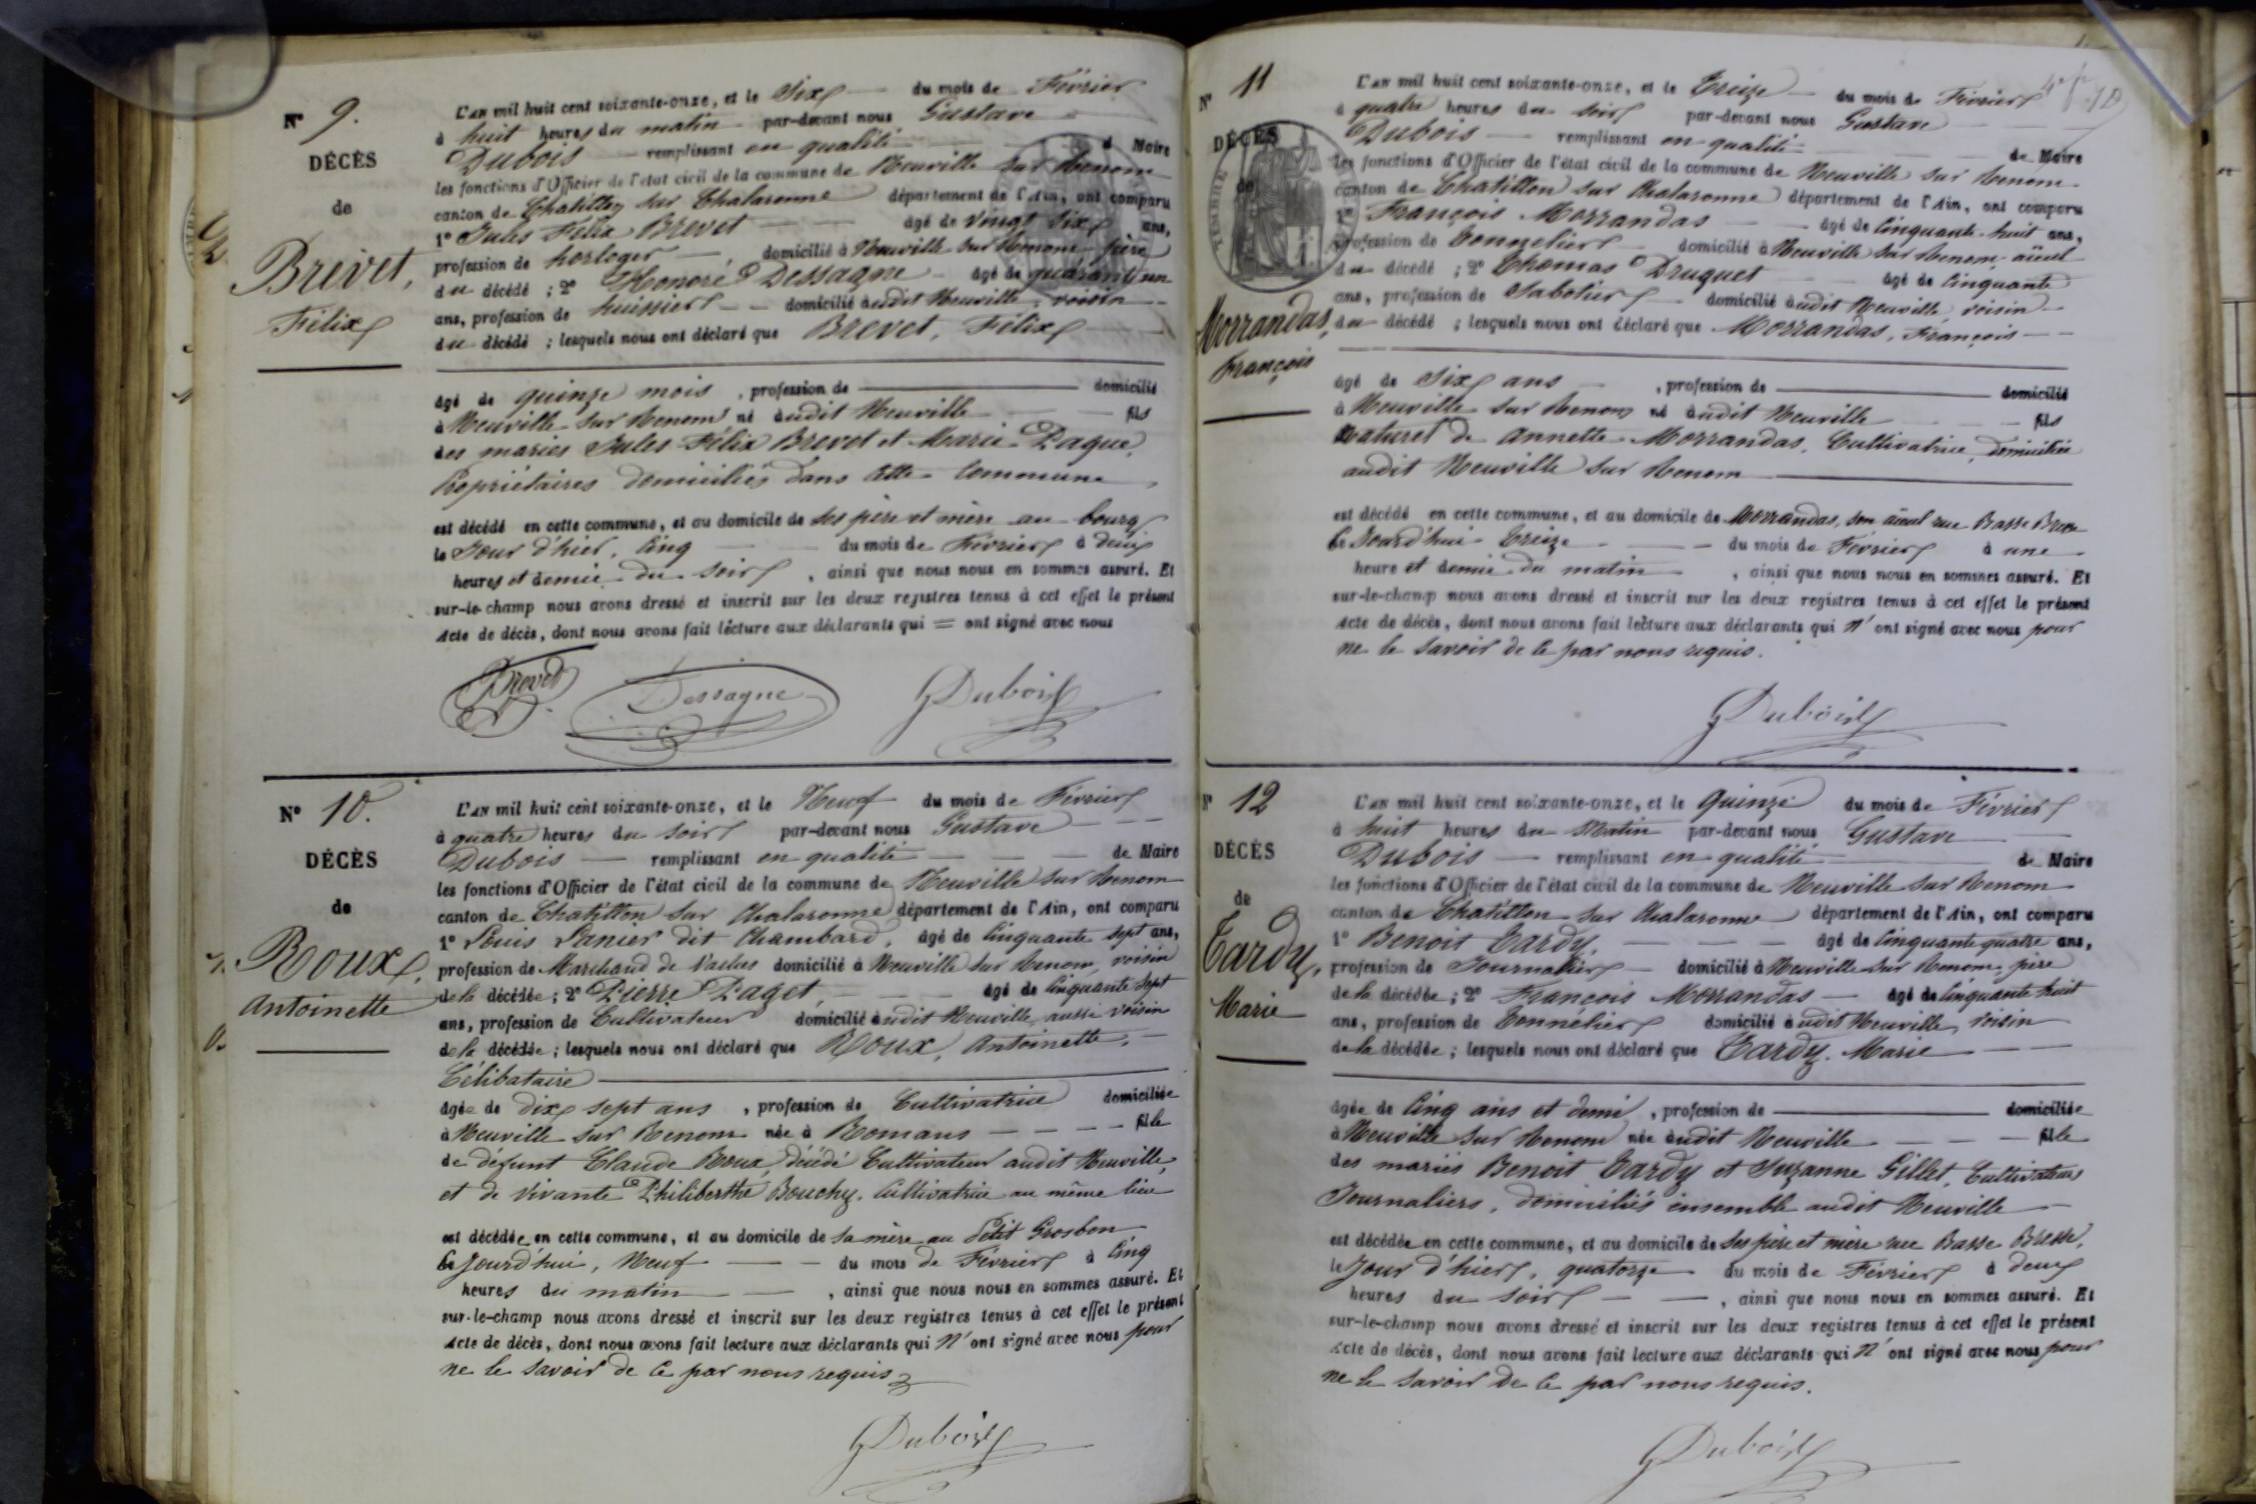 N° 9.
DÉCÈS
de
Brevet,
Félix
L'AN mil huit cent soixante-onze, et le Six du mois de Février
à huit heures du matin par-devant nous Gustave
Dubois remplissant en qualité de Maire
les fonctions d'Officier de l'état civil de la commune de Neuville sur Renom
canton de Chatillon sur Chalaronne département de l'Ain, ont comparu
1° Jules Félix Brevet âgé de vingt six ans,
profession de horloger, domicilié à Neuville sur Renom père
du décédé ; 2° Honoré Dessagne âgé de quarante un
ans, profession de huissier domicilié audit Neuville, voisin
du décédé ; lesquels nous ont déclaré que Brevet, Félix
âgé de quinze mois, profession de domicilié
à Neuville sur Renom né audit Neuville fils
des mariés Jules Félix Brevet et Marie Paque,
Propriétaires domiciliés dans cette Commune
est décédé en cette commune, et au domicile de ses père et mère au bourg
le Jour d'hier, cinq du mois de Février à deux
heures et demie du soir, ainsi que nous nous en sommes assuré. Et
sur-le-champ nous avons dressé et inscrit sur les deux registres tenus à cet effet le présent
acte de décès, dont nous avons fait lecture aux déclarants qui = ont signé avec nous
Brevet Dessagne GDubois
N° 10.
DÉCÈS
de
Roux,
Antoinette
L'AN mil huit cent soixante-onze, et le Neuf du mois de Février
à quatre heures du soir par-devant nous Gustave
Dubois remplissant en qualité de Maire
les fonctions d'Officier de l'état civil de la commune de Neuville sur Renom
canton de Chatillon sur Chalaronne département de l'Ain, ont comparu
1° Louis Lanier dit Chambard, âgé de cinquante sept ans,
profession de Marchand de Vaches domicilié à Neuville sur Renom, voisin
de la décédée ; 2° Pierre Paget, âgé de cinquante sept
ans, profession de Cultivateur domicilié audit Neuville, aussi voisin
de la décédée ; lesquels nous ont déclaré que Roux, Antoinette,
Célibataire
âgée de dix sept ans, profession de Cultivatrice domiciliée
à Neuville sur Renom née à Romans fille
de défunt Claude Roux, décédé Cultivateur audit Neuville,
et de vivante Philiberthe Bouchy, Cultivatrice au même lieu
est décédée en cette commune, et au domicile de sa mère au Petit Grosbon
ce Jourd'hui, Neuf du mois de Février à cinq
heures du matin, ainsi que nous nous en sommes assuré. Et
sur-le-champ nous avons dressé et inscrit sur les deux registres tenus à cet effet le présent
acte de décès, dont nous avons fait lecture aux déclarants qui n'ont signé avec nous pour
ne le savoir de ce par nous requis
GDubois
N° 11
DÉCÈS
de
Morrandas,
François
L'AN mil huit cent soixante-onze, et le Treize du mois de Février
à quatre heures du soir par-devant nous Gustave
Dubois remplissant en qualité de Maire
les fonctions d'Officier de l'état civil de la commune de Neuville sur Renom
canton de Chatillon sur Chalaronne département de l'Ain, ont comparu
1° François Morrandas âgé de cinquante-huit ans,
profession de Tonnelier domicilié à Neuville sur Renom, aïeul
du décédé ; 2° Thomas Druguet âgé de cinquante
ans, profession de Sabotier domicilié audit Neuville, voisin
du décédé ; lesquels nous ont déclaré que Morrandas, François
âgé de Six ans, profession de domicilié
à Neuville sur Renom né audit Neuville fils
naturel de Annette Morrandas, Cultivatrice, domiciliée
audit Neuville sur Renom
est décédé en cette commune, et au domicile de Morrandas, son aïeul rue Basse Bresse
ce Jourd'hui Treize du mois de Février à une
heure et demie du matin, ainsi que nous nous en sommes assuré. Et
sur-le-champ nous avons dressé et inscrit sur les deux registres tenus à cet effet le présent
acte de décès, dont nous avons fait lecture aux déclarants qui n'ont signé avec nous pour
ne le savoir de ce par nous requis.
GDubois
N° 12
DÉCÈS
de
Tardy,
Marie
L'AN mil huit cent soixante-onze, et le Quinze du mois de Février
à huit heures du Matin par-devant nous Gustave
Dubois remplissant en qualité de Maire
les fonctions d'Officier de l'état civil de la commune de Neuville sur Renom
canton de Chatillon sur Chalaronne département de l'Ain, ont comparu
1° Benoit Tardy, âgé de cinquante quatre ans,
profession de Journalier domicilié à Neuville sur Renom, père
de la décédée ; 2° François Morrandas âgé de cinquante huit
ans, profession de Tonnélier domicilié audit Neuville, voisin
de la décédée ; lesquels nous ont déclaré que Tardy, Marie
âgée de Cinq ans et demi, profession de domiciliée
à Neuville sur Renom née audit Neuville fille
des mariés Benoit Tardy et Suzanne Gillet, Cultivateurs
Journaliers, domiciliés ensemble audit Neuville
est décédée en cette commune, et au domicile de ses père et mère rue Basse Bresse,
le Jour d'hier, quatorze du mois de Février à deux
heures du soir, ainsi que nous nous en sommes assuré. Et
sur-le-champ nous avons dressé et inscrit sur les deux registres tenus à cet effet le présent
acte de décès, dont nous avons fait lecture aux déclarants qui n'ont signé avec nous pour
ne le savoir de ce par nous requis.
GDubois